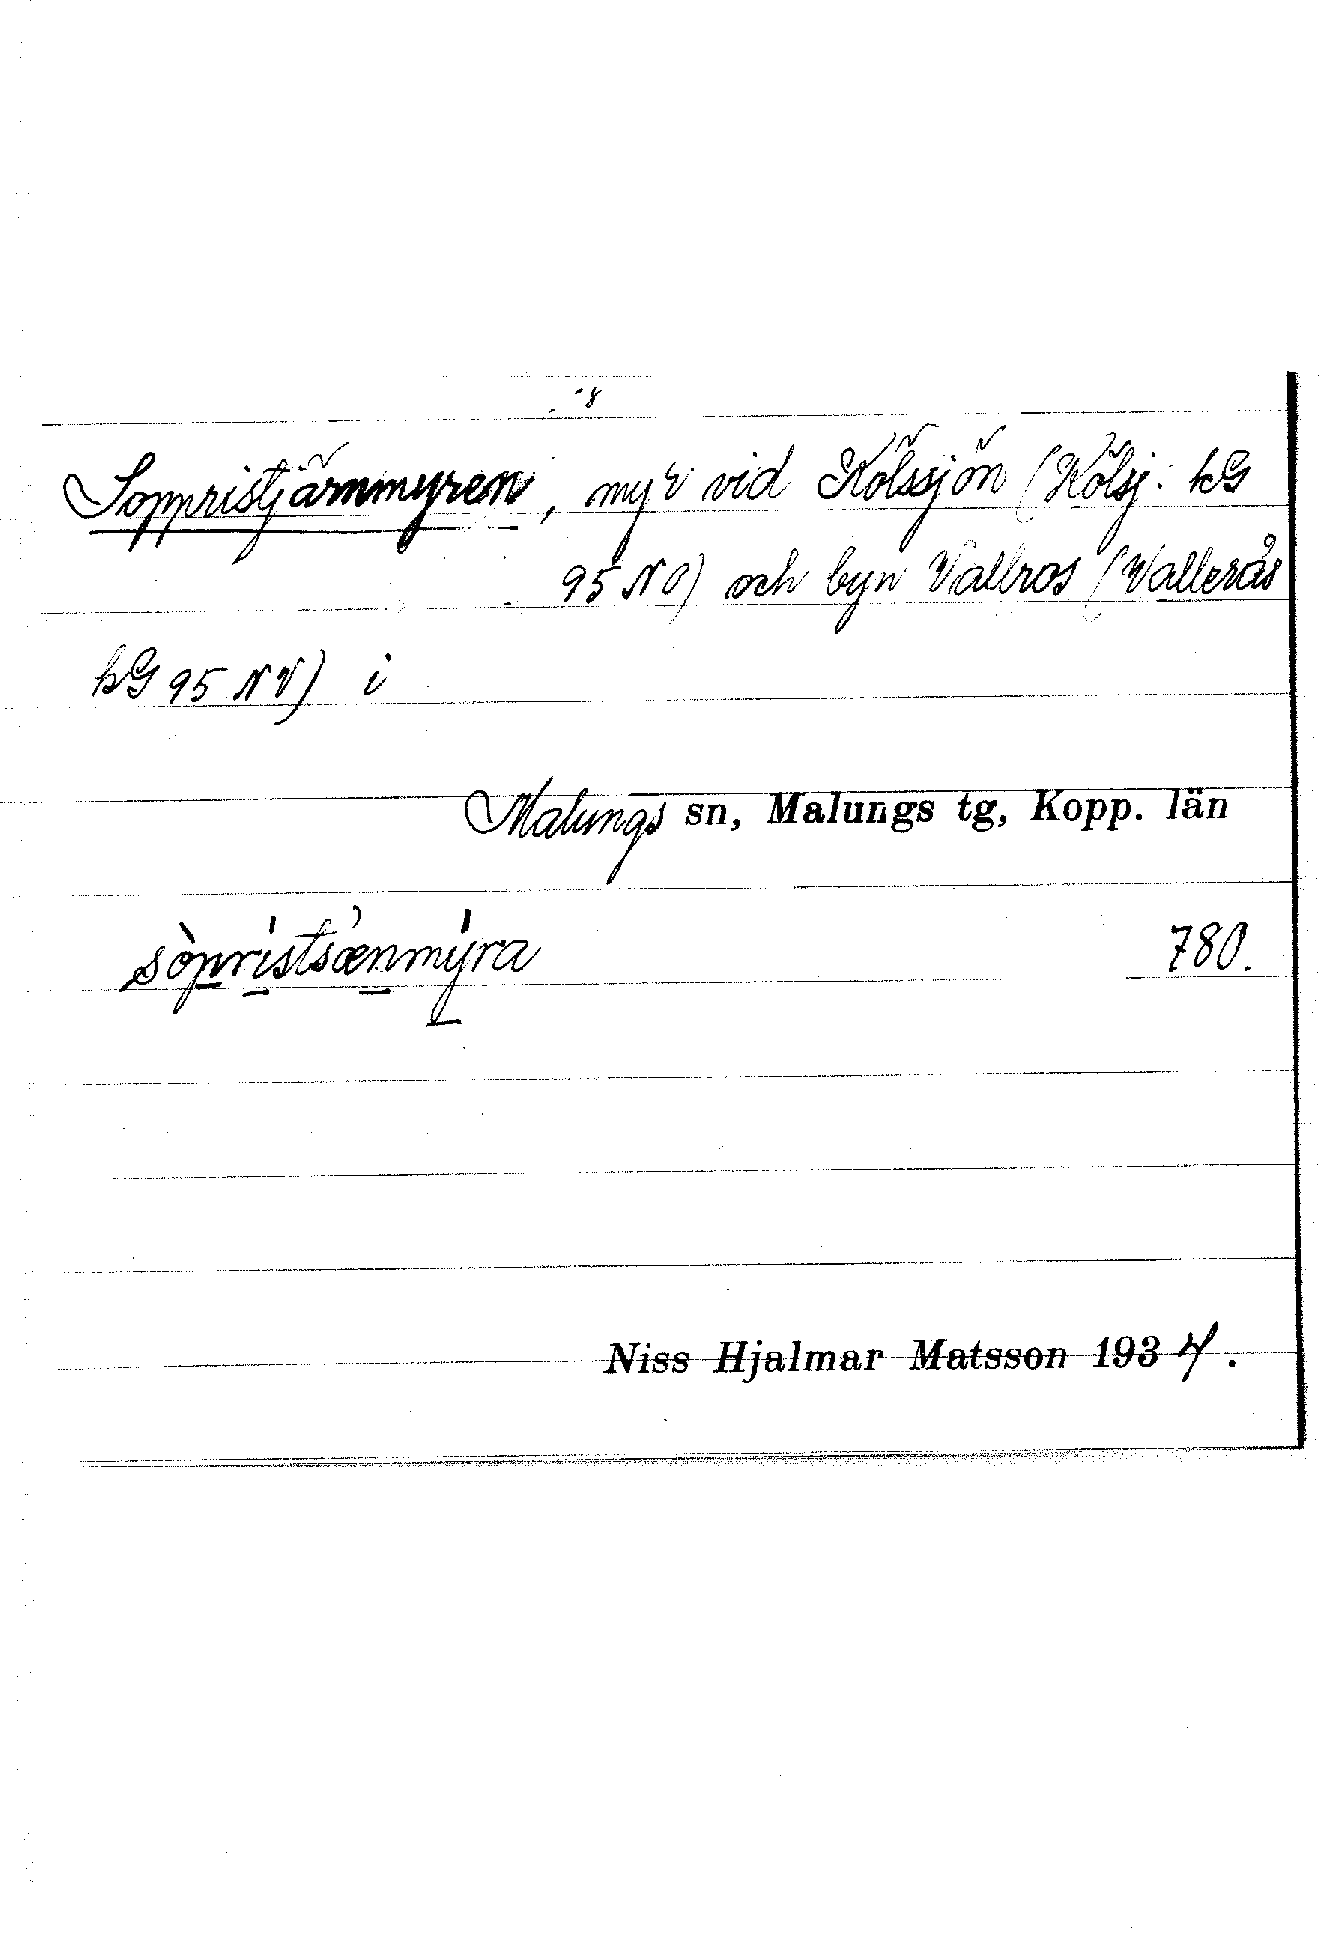 Soppristjärnmyren, myr vid Kölssjön (Kölsj: kG
95 NO) och byn Vallros (Vallerås
kG 95 NV) i
Malungs sn, Malungs tg, Kopp. län
sòpristsænmýra 780.
Niss Hjalmar Matsson 1934.